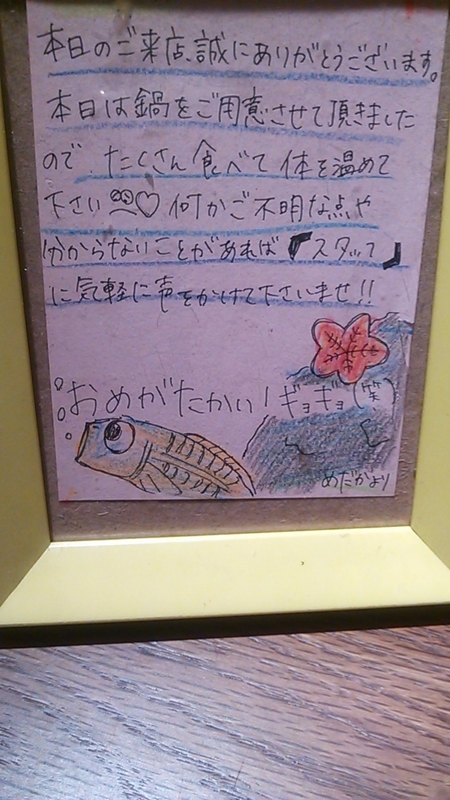 本日のご来店、誠にありがとうございます。
本日は鍋をご用意させて頂きました
ので、たくさん食べて体を温めて
下さい♡何かご不明な点や
分からないことがあれば『スタッフ』
に気軽に声をかけて下さいませ!!
おめがたかい!ギョギョ(笑)
めだかより